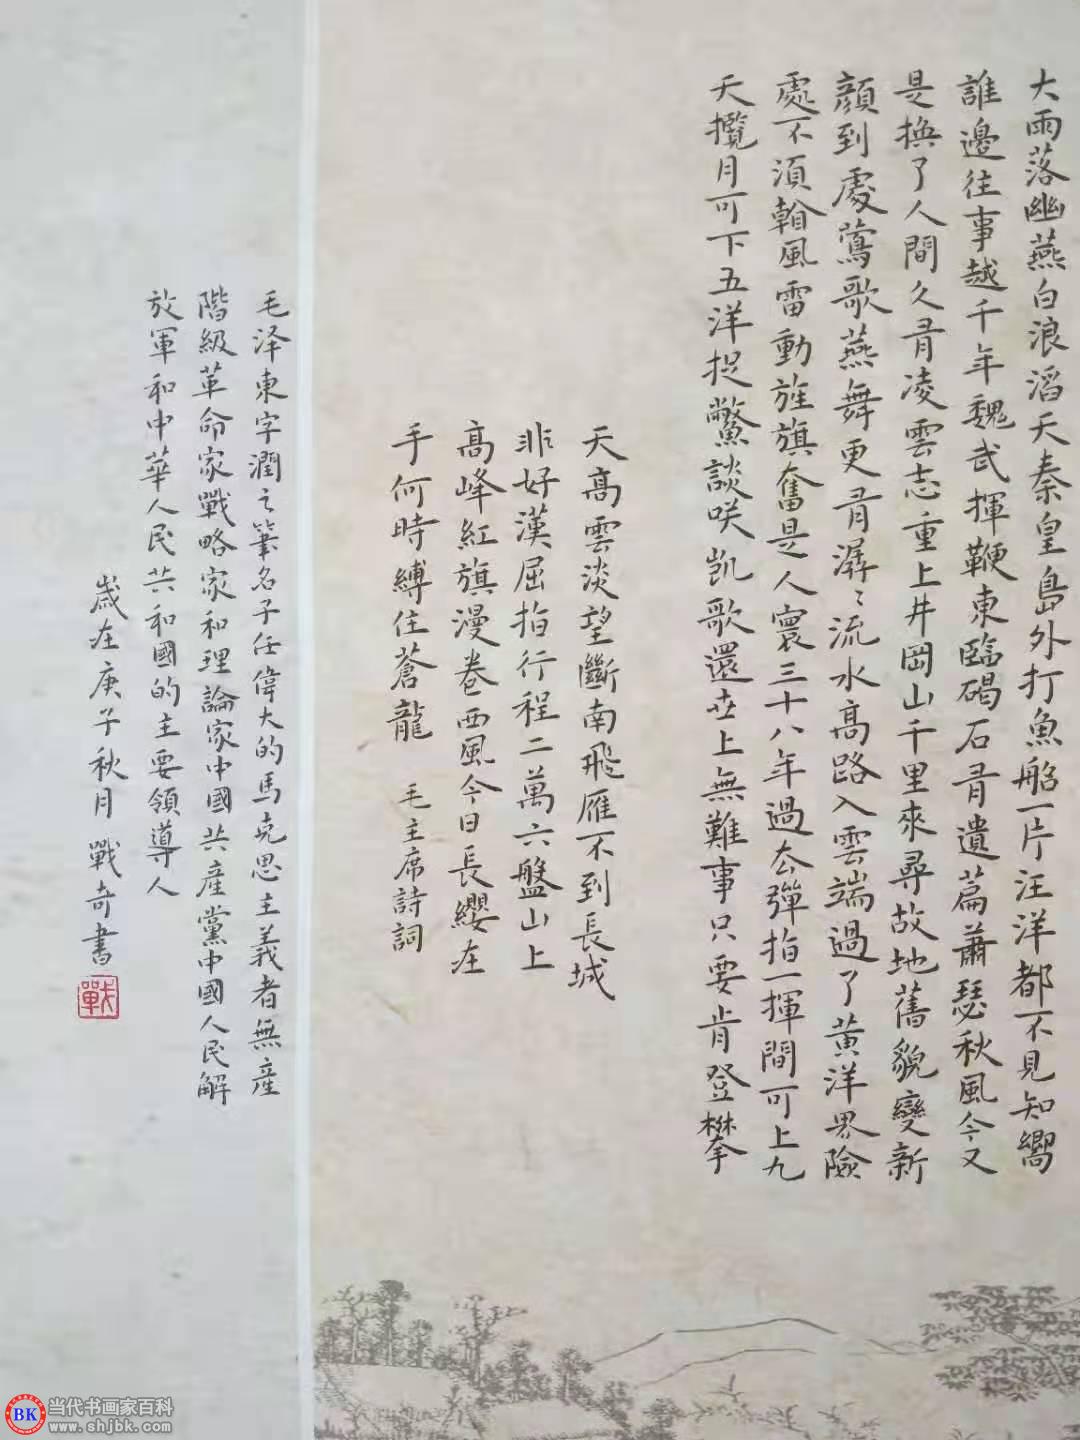 大雨落幽燕白浪滔天秦皇島外打魚船一片汪洋都不見知嚮
誰邊往事越千年魏武揮鞭東臨碣石有遺篇蕭瑟秋風今又
是換了人間久有凌雲志重上井岡山千里來尋故地舊貌變新
顏到處鶯歌燕舞更有潺〻流水高路入雲端過了黃洋界險
處不須翰風雷動旌旗奮是人寰三十八年過去彈指一揮間可上九
天攬月可下五洋捉鱉談咲凱歌還世上無難事只要肯登攀
天高雲淡望斷南飛雁不到長城
非好漢屈指行程二萬六盤山上
高峰紅旗漫卷西風今日長纓在
手何時縛住蒼龍 毛主席詩詞
毛泽東字潤之筆名子任偉大的馬克思主義者無産
階級革命家戰略家和理論家中國共産黨中國人民解
放軍和中華人民共和國的主要領導人
歲在庚子秋月 戰奇書
戰
BK 当代书画家百科
www.shjbk.com